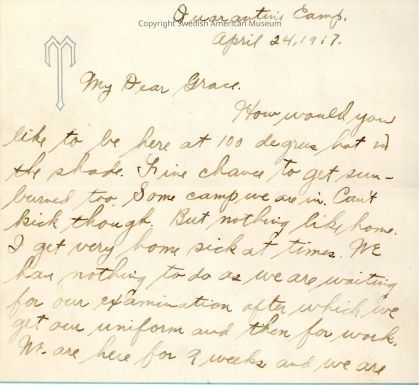 Quarantine Camp.
Copyright Swedish American Museum
April 24, 1917.
T
My Dear Grace.
How would you
like to be here at 100 degrees hot in
the shade. Fine chance to get sun-
burned too. Some camp we are in. Can't
kick though. But nothing like home.
I get very home sick at times. We
has nothing to do as we are waiting
for our examination after which we
get our uniform and then for work.
We are here for 9 weeks and we are